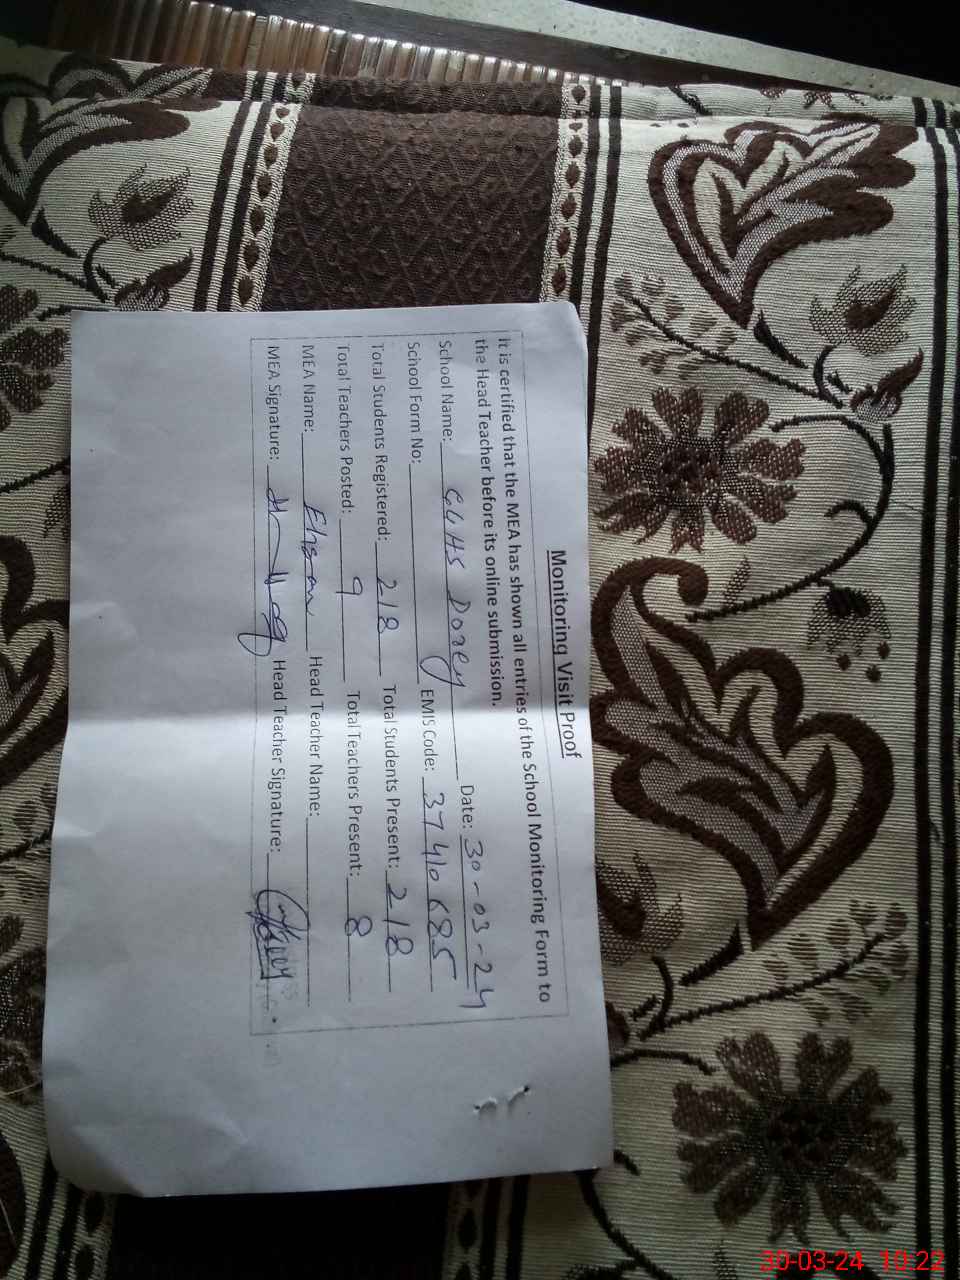 Monitoring Visit Proof
It is certified that the MEA has shown all entries of the School Monitoring Form to
the Head Teacher before its online submission.
School Name: GGHS Dorey Date: 30-03-24
School Form No: EMIS Code: 37410685
Total Students Registered: 218 Total Students Present: 218
Total Teachers Posted: 9 Total Teachers Present: 8
MEA Name: Ehsan Head Teacher Name:
MEA Signature: Head Teacher Signature:
30-03-24 10:22